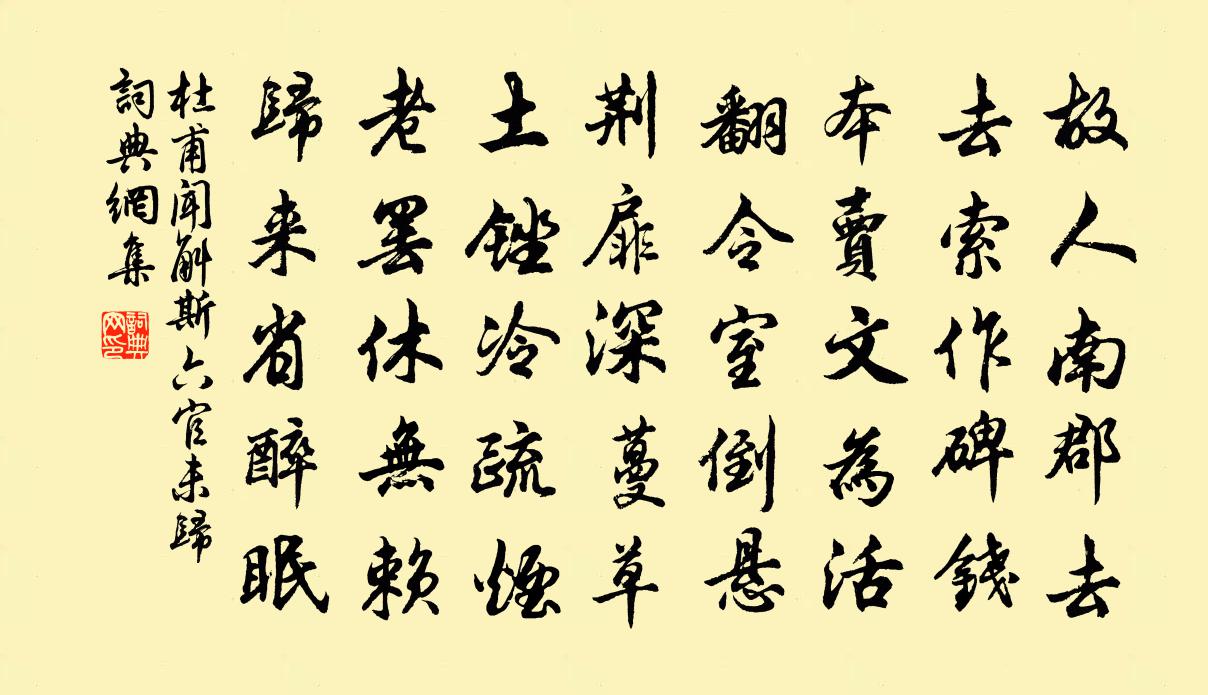 故人南郡去
去索作碑錢
本賣文為活
翻令室倒懸
荆扉深蔓草
土銼冷疏煙
老罷休無賴
歸来省醉眠
杜甫聞斛斯六官未歸
詞典網集
詞典网印